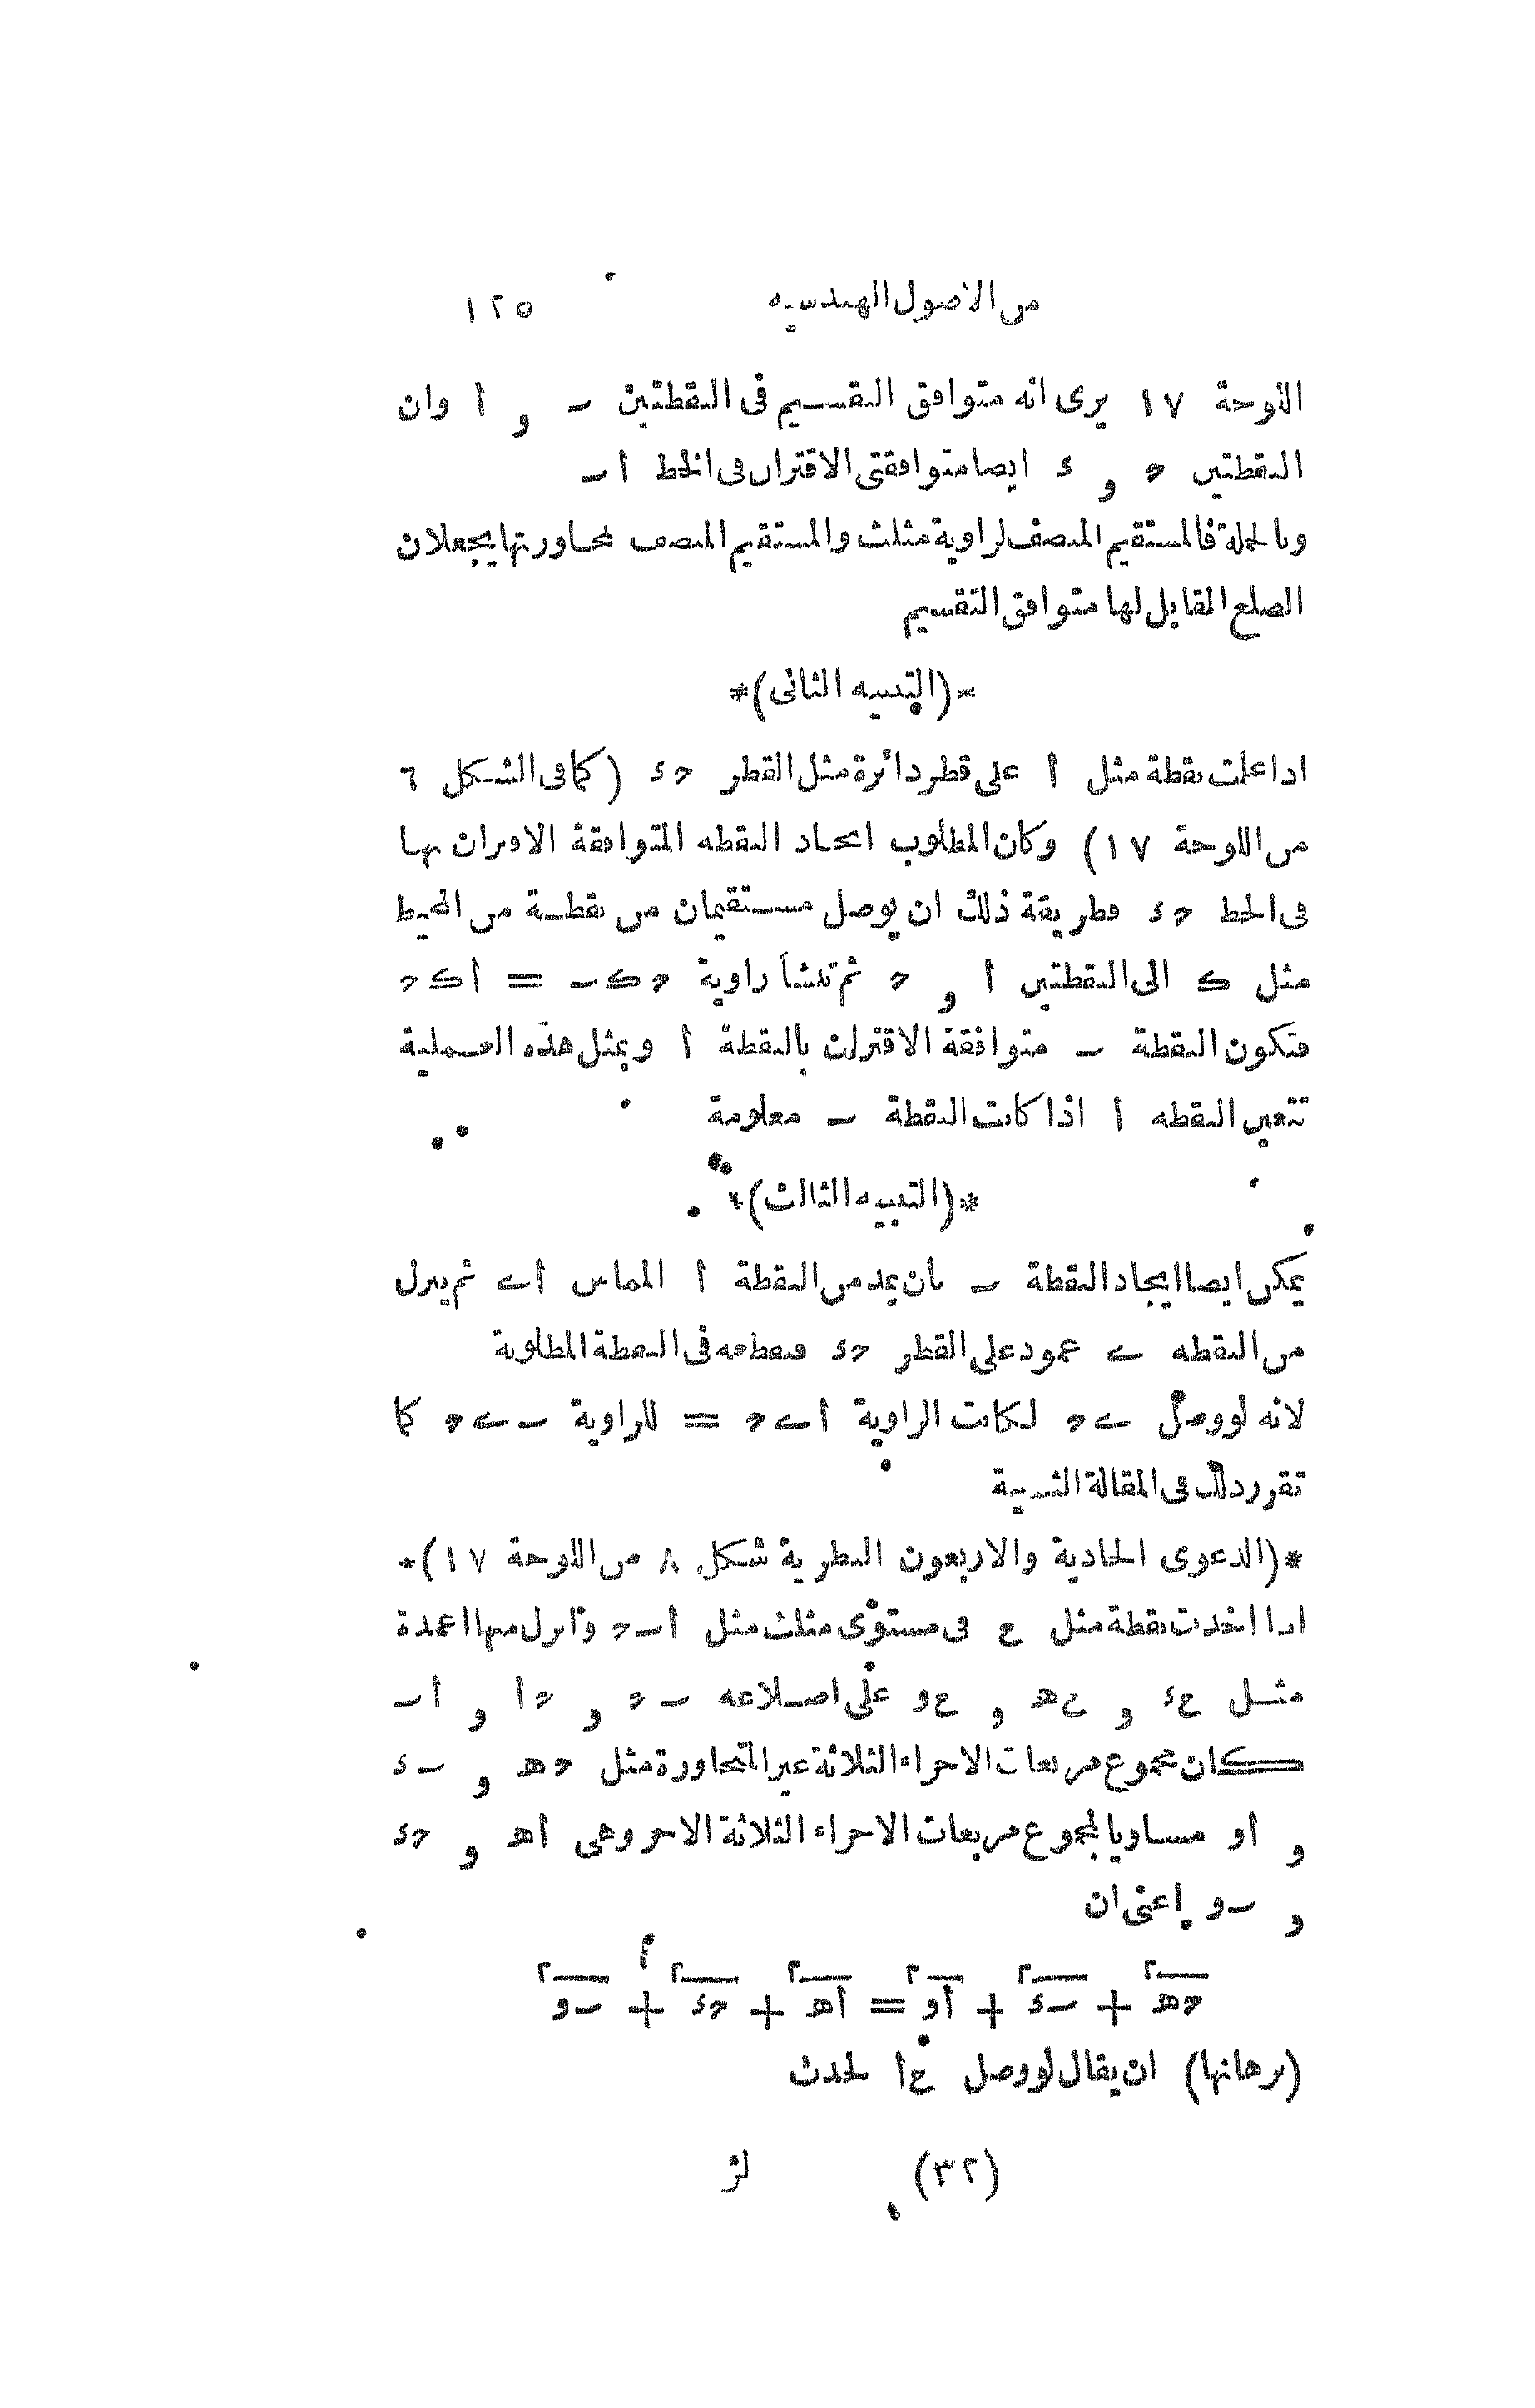 من الاصول الهندسيه ١٢٥
اللوحة ١٧ يرى انه متوافق التقسيم فى النقطتين ب و ا وان
النقطتين ح و ء ايضا متوافقتى الاقتران فى الخط اب
وبالجملة فالمستقيم المنصف لزاوية مثلث والمستقيم المنصف لمجاورتها يجعلان
الضلع المقابل لها متوافق التقسيم
*(التنبيه الثانى)*
اذا علمت نقطة مثل ا على قطر دائرة مثل القطر حء (كما فى الشكل ٦
من اللوحة ١٧) وكان المطلوب ايجاد النقطه المتوافقة الاقتران بها
فى الخط حء فطريقة ذلك ان يوصل مستقيمان من نقطة من المحيط
مثل ك الى النقطتين ا و ح ثم تنشأ زاوية حكب = اكح
فتكون النقطة ب متوافقة الاقتران بالنقطة ا وبمثل هذه العملية
تتعين النقطه ا اذا كانت النقطة ب معلومة
*(التنبيه الثالث)*
يمكن ايضا ايجاد النقطة ب بان يمد من النقطة ا المماس اے ثم ينزل
من النقطه ے عمود على القطر حء فيقطعه فى النقطة المطلوبة
لانه لو وصل ےح لكانت الزاوية اےح = للزاوية بےح كما
تقرر ذلك فى المقالة الثانية
*(الدعوى الحادية والاربعون النظرية شكل ٨ من اللوحة ١٧)*
اذا اخذت نقطة مثل ع فى مستوى مثلث مثل ابح وانزل منها اعمدة
مثل عء و عه و عو على اضلاعه بح و حا و اب
كان مجموع مربعات الاجزاء الثلاثة غير المتجاورة مثل حه و بء
و او مساويا لمجموع مربعات الاجزاء الثلاثة الاخر وهى اه و حء
و بو اعنى ان
حه٢ + بء٢ + او٢ = اه٢ + حء٢ + بو٢
(برهانها) ان يقال لو وصل عا لحدث
(٣٢) لژ